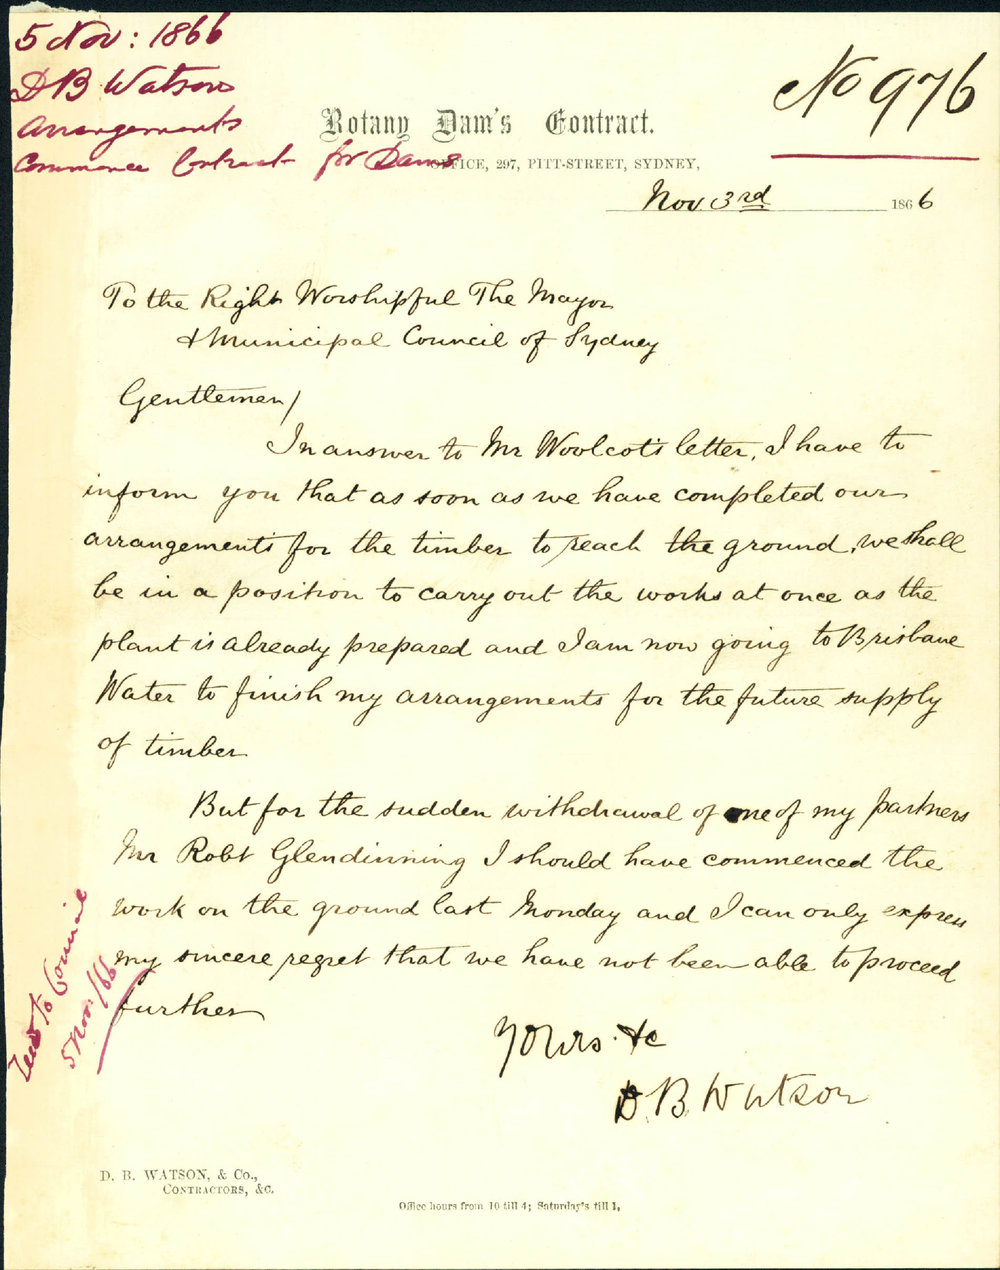 5 Nov: 1866
D B Watson
Arrangements
Commence Contract for Dams
No 976
Botany Dam's Contract.
OFFICE, 297, PITT-STREET, SYDNEY,
Nov 3rd 1866
To the Right Worshipful The Mayor
& Municipal Council of Sydney
Gentlemen/
In answer to Mr Woolcot's letter, I have to
inform you that as soon as we have completed our
arrangements for the timber to reach the ground, we shall
be in a position to carry out the works at once as the
plant is already prepared and I am now going to Brisbane
Water to finish my arrangements for the future supply
of timber
But for the sudden withdrawal of one of my partners
Mr Robt Glendinning I should have commenced the
work on the ground last Monday and I can only express
my sincere regret that we have not been able to proceed
further
Yours &c
D. B. Watson
to Council
5 Nov: /66
D. B. WATSON, & Co.,
CONTRACTORS, &c.
Office hours from 10 till 4; Saturday's till 1,